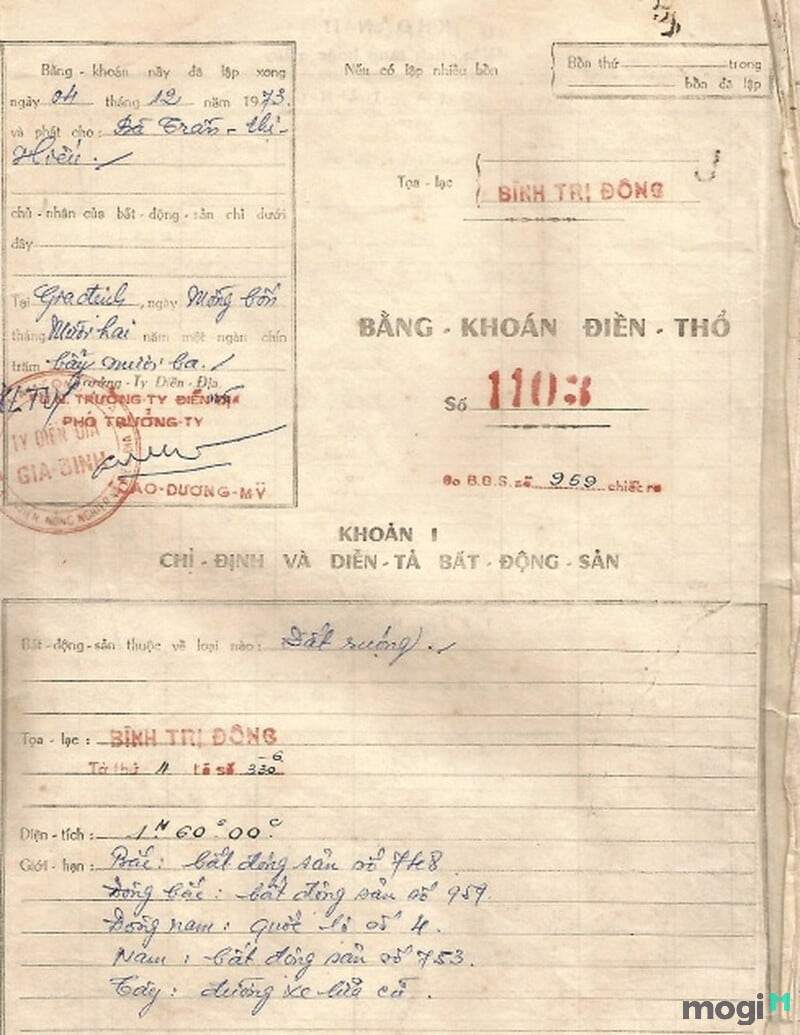 Bằng - khoán nầy đã lập xong
ngày 04 tháng 12 năm 1973.
và phát cho: Bà Trần - thị -
Hiếu./
chủ - nhân của bất - động - sản chỉ dưới
đây
Tại Gia định, ngày Mồng bốn
tháng Mười hai năm một ngàn chín
trăm bảy mươi ba./
Trưởng - Ty Điền - Địa
TRƯỞNG-TY ĐIỀN ĐỊA
PHÓ TRƯỞNG-TY
TY ĐIỀN ĐỊA
GIA-ĐỊNH
CAO-DƯƠNG-MỸ
Nếu có lập nhiều bổn
Bổn thứ trong
bổn đã lập
Tọa - lạc
BÌNH TRỊ ĐÔNG
BẰNG - KHOÁN ĐIỀN - THỔ
Số 1103
Do B.Đ.S. số 959 chiết ra
KHOẢN I
CHỈ - ĐỊNH VÀ DIỄN - TẢ BẤT - ĐỘNG - SẢN
Bất - động - sản thuộc về loại nào: Đất ruộng./
Tọa - lạc : BÌNH TRỊ ĐÔNG
Tờ thứ 11 Lô số 330-6
Diện - tích : 1M 60S 00C.
Giới - hạn : Bắc : bất động sản số 748
Đông bắc : bất động sản số 959.
Đông nam : quốc lộ số 4.
Nam : bất động sản số 753.
Tây : đường xe lửa cũ.
mogiM